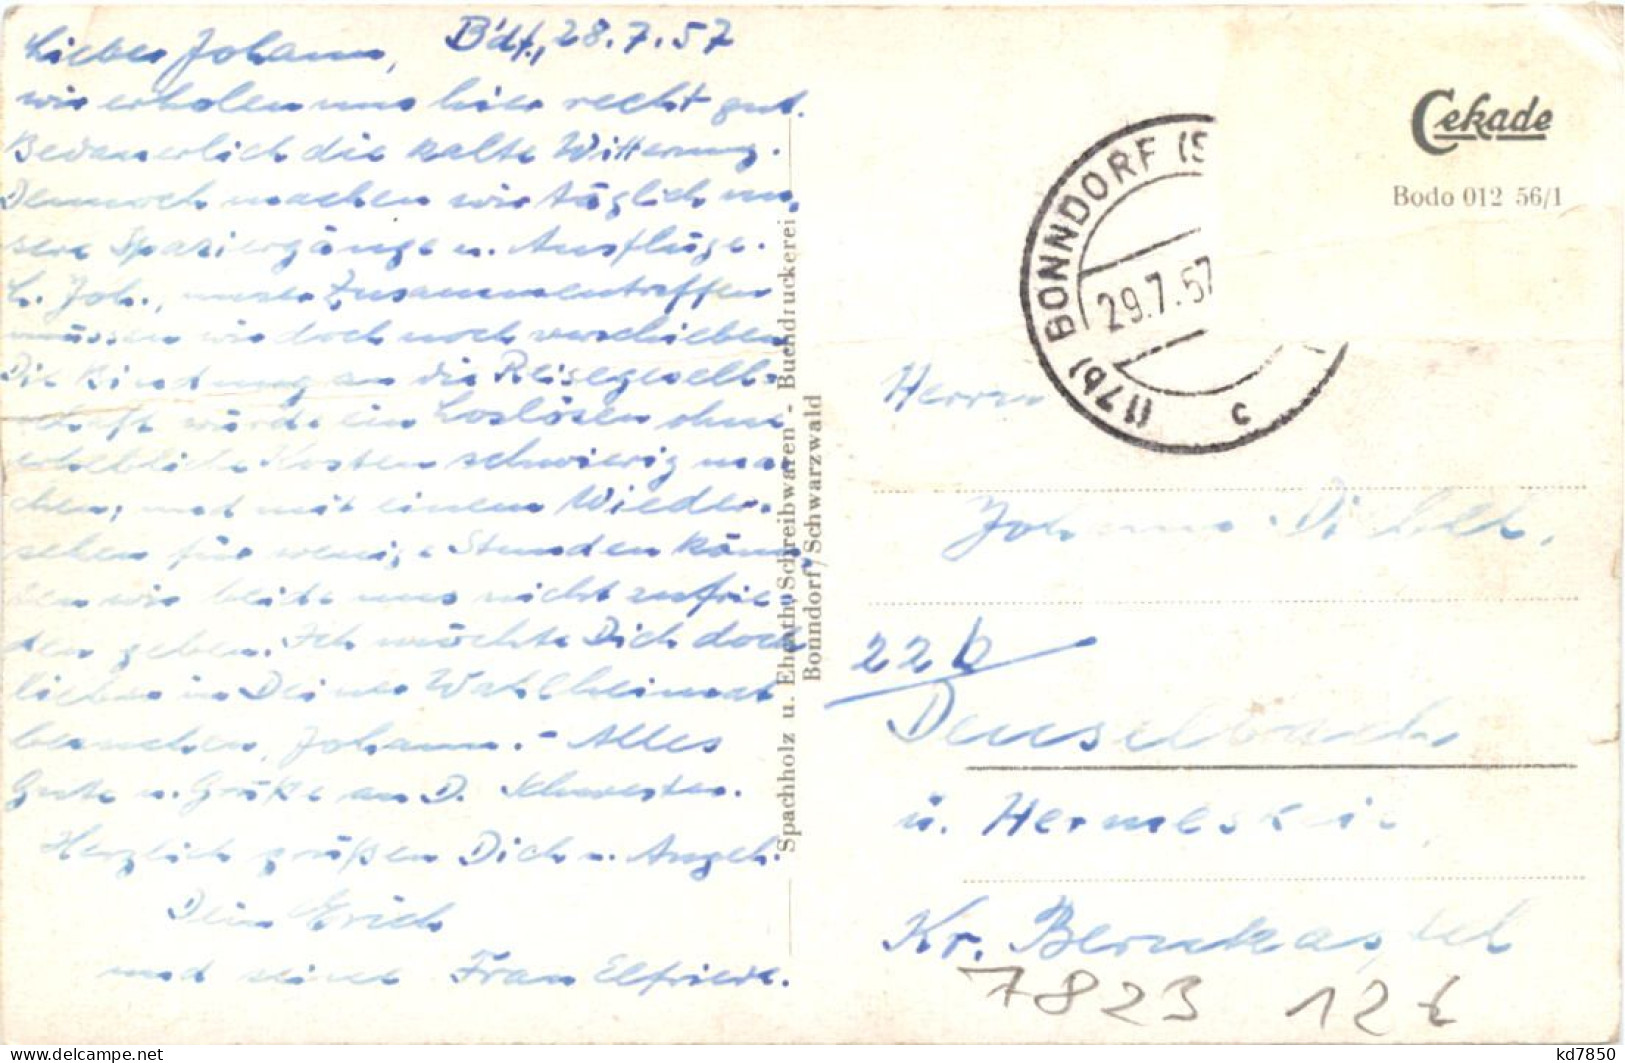 Lieber Johann, B'df., 28.7.57
wir erholen uns hier recht gut.
Bedauerlich die kalte Witterung.
Dennoch machen wir täglich un-
sere Spaziergänge u. Ausflüge.
L. Joh., unser Zusammentreffen
müssen wir doch noch verschieben.
Die Bindung an die Reisegesell-
schaft würde ein Loslösen ohne
erhebliche Kosten schwierig ma-
chen; und mit einem Wieder-
sehen für wenige Stunden kön-
nen wir beide uns nicht zufrie-
den geben. Ich möchte Dich doch
lieber in Deiner Wahlheimat
besuchen, Johann. - Alles
Gute u. Grüße an D. Schwester.
Herzlich grüßen Dich u. Angeh.
Dein Erich
und seine Frau Elfriede.
Spachholz u. Ehrath, Schreibwaren - Buchdruckerei
Bonndorf/Schwarzwald
Cekade
Bodo 012 56/1
(17b) BONNDORF (S
29.7.57
c
Herrn
Johann
22b
Deuselbach
ü. Hermeskeil
Kr. Bernkastel
7823 12t
kd7850